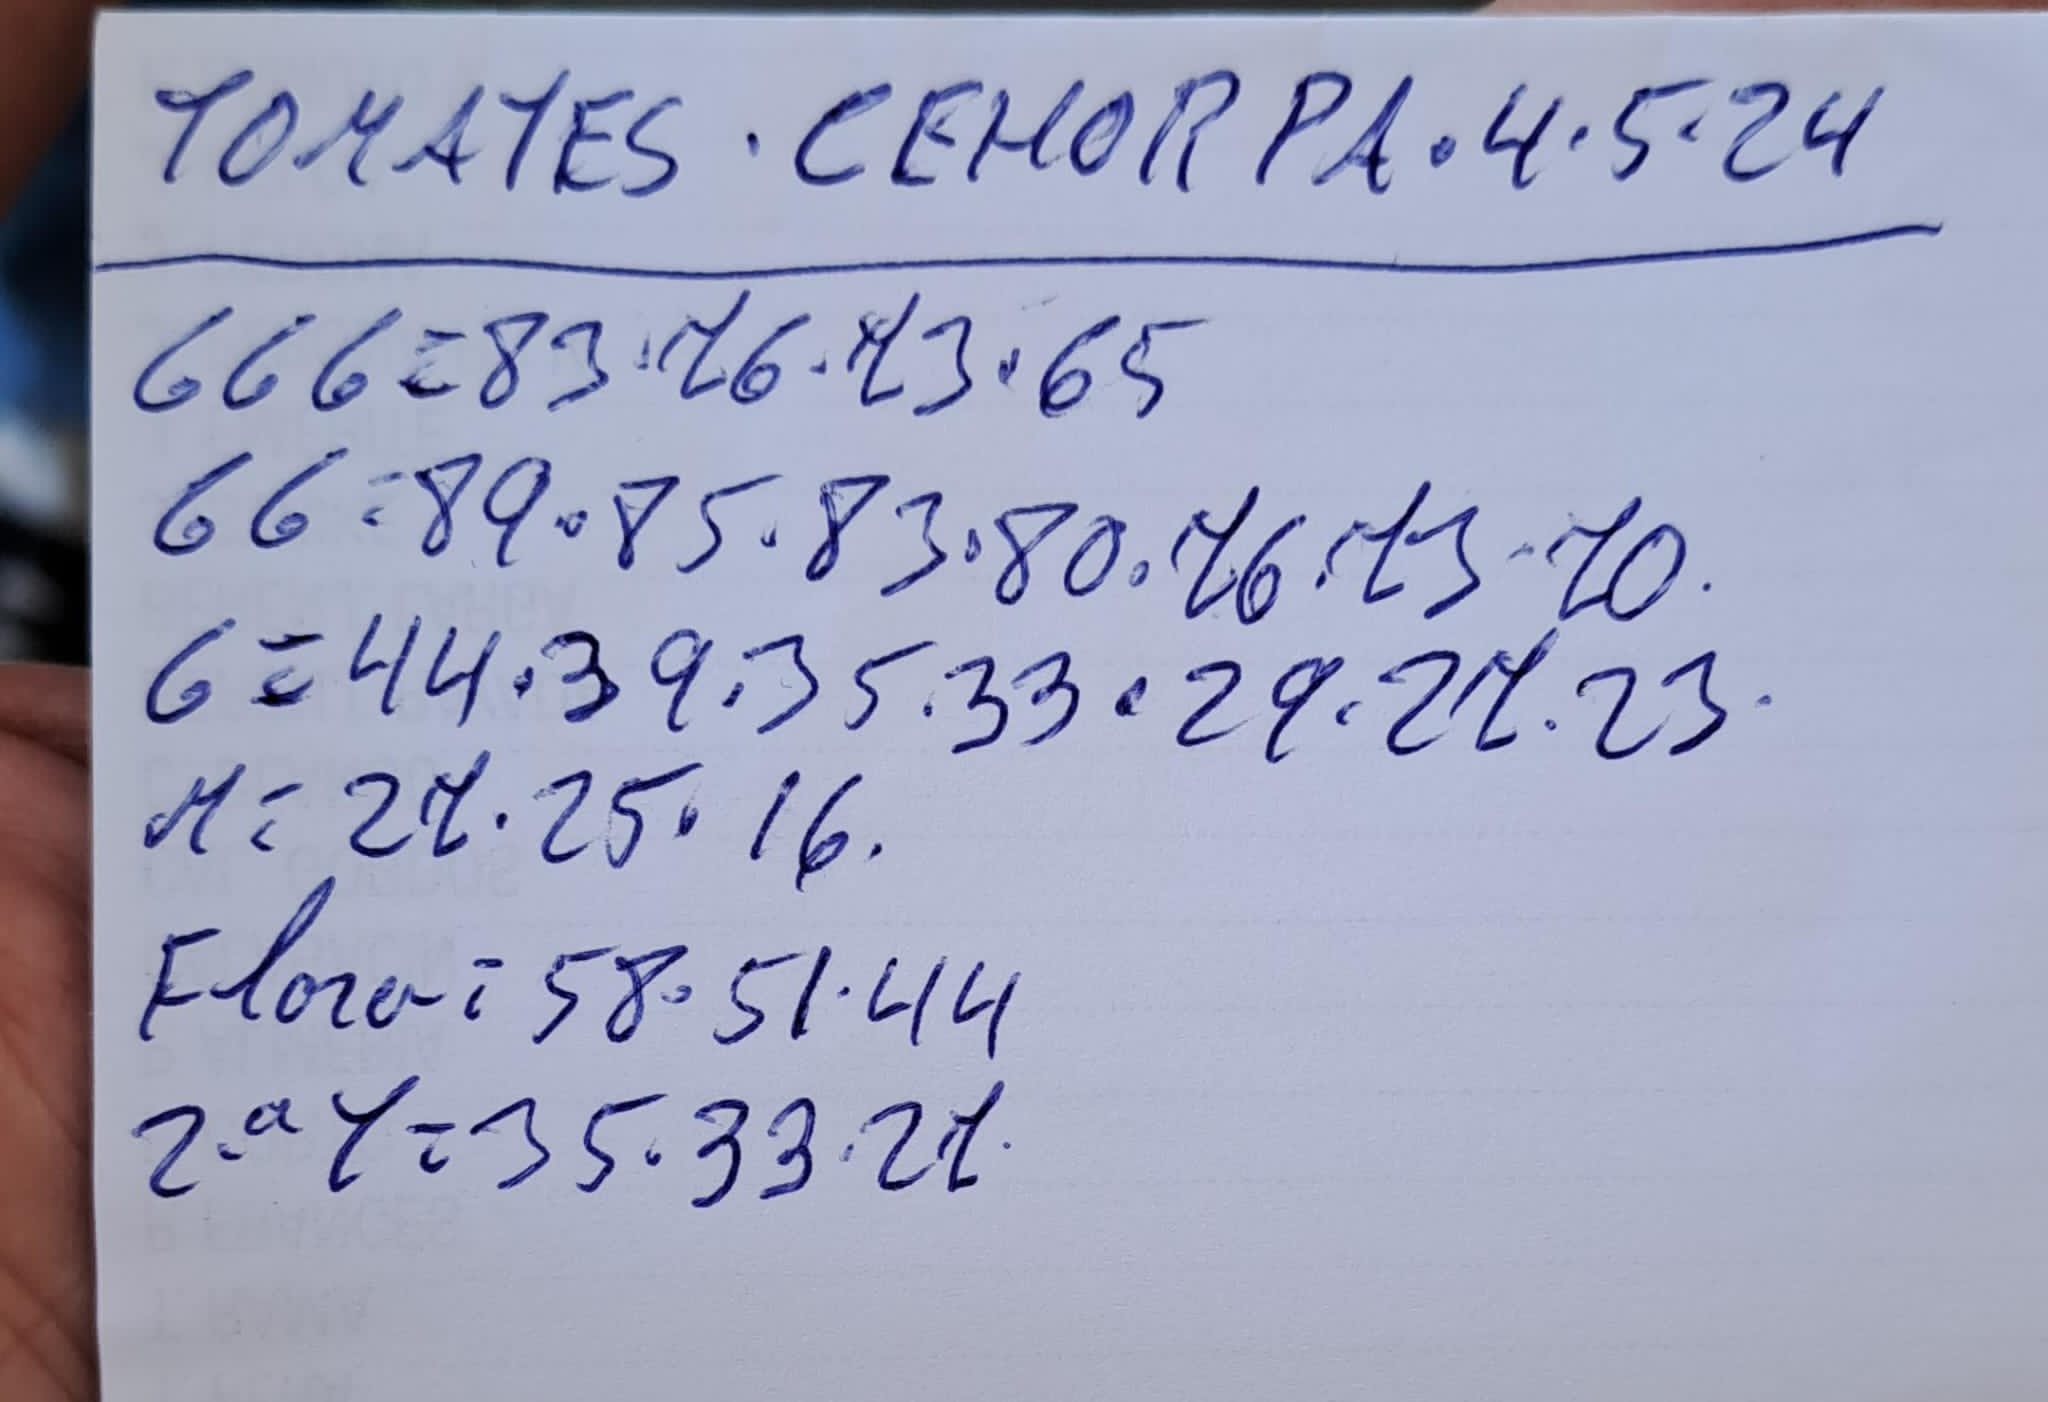 TOMATES · CEHORPA · 4·5·24
GGG = 83·76·73·65
GG = 89·85·83·80·76·73·70.
G = 44·39·35·33·29·27·23.
M = 27·25·16.
Flora = 58·51·44
2.ª Y = 35·33·27.